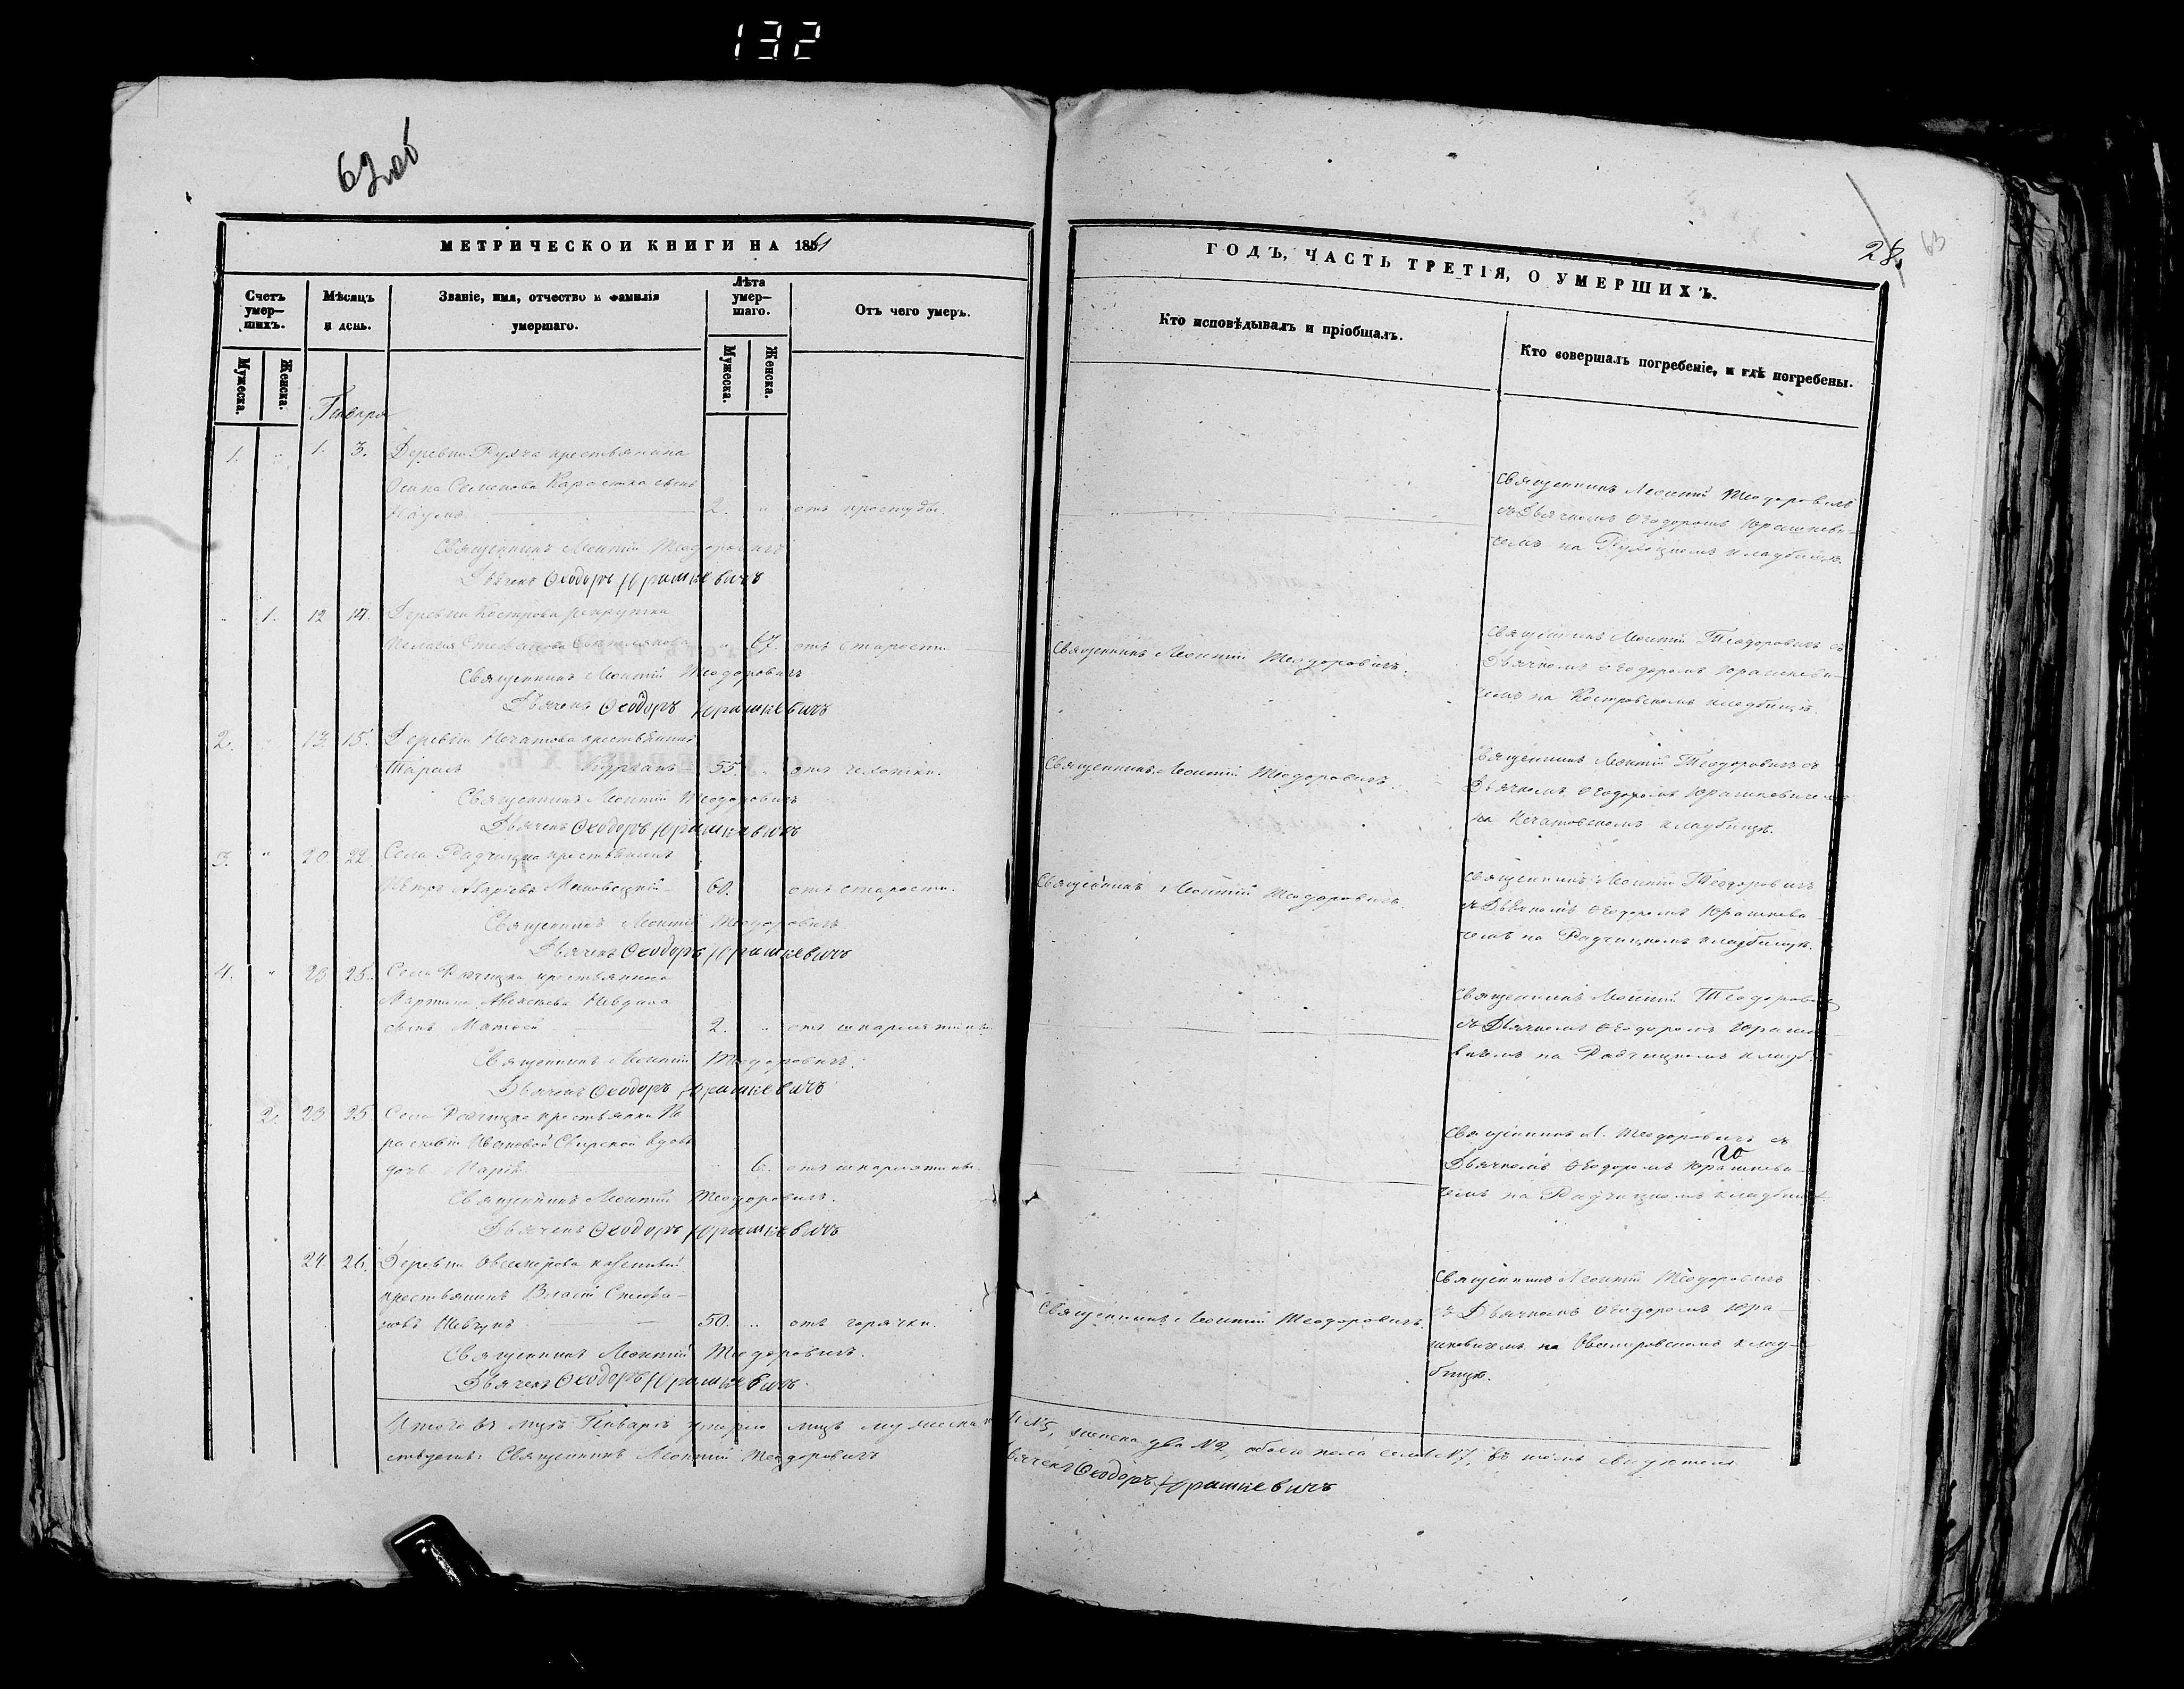 132
62об
МЕТРИЧЕСКОЙ КНИГИ НА 1861
Счетъ умер-шихъ.
Мѣсяцъ и день.
Званіе, имя, отчество и фамилія умершаго.
Лѣта умер-шаго.
Отъ чего умеръ.
Мужеска.
Женска.
Мужеска.
Женска.
Января
1. " 1. 3. Деревни крестьянина
Осипа Семенова сынъ
Наумъ 2. " отъ простуды.
Священникъ Леонтій Теодоровичъ
Дьячекъ Ѳеодоръ Юрашкевичъ
" 1. 12 14. Деревни Кострова
Стефанова " 67. отъ старости
Священникъ Леонтій Теодоровичъ
Дьячекъ Ѳеодоръ Юрашкевичъ
2. " 13. 15. Деревни Нечатова крестьянинъ
Тарасъ 55. " отъ чахотки.
Священникъ Леонтій Теодоровичъ
Дьячекъ Ѳеодоръ Юрашкевичъ
3. " 20 22 Села Радчицка крестьянинъ
60. отъ старости.
Священникъ Леонтій Теодоровичъ
Дьячекъ Ѳеодоръ Юрашкевичъ
4. " 23. 25. Села Радчицка крестьянина
Мартина Алексѣева
сынъ Матѳей 2. " отъ шкарлятины.
Священникъ Леонтій Теодоровичъ.
Дьячекъ Ѳеодоръ Юрашкевичъ
2. 23 25 Села Радчицка крестьянки Па
раскевіи Ивановой вдовы
дочь Марія 6. отъ шкарлятины.
Священникъ Леонтій Теодоровичъ.
Дьячекъ Ѳеодоръ Юрашкевичъ
24 26. Деревни казенный
крестьянинъ Власій Стефа-
новъ Шевчукъ 50. " отъ горячки.
Священникъ Леонтій Теодоровичъ.
Дьячекъ Ѳеодоръ Юрашкевичъ.
Итого въ Январѣ умерло лицъ мужеска
Священникъ Леонтій Теодоровичъ
28. 63
ГОДЪ, ЧАСТЬ ТРЕТІЯ, О УМЕРШИХЪ.
Кто исповѣдывалъ и пріобщалъ.
Кто совершалъ погребеніе, и гдѣ погребены.
Священникъ Леонтій Теодоровичъ
съ Дьячкомъ Ѳеодоромъ Юрашкеви-
чемъ на кладбищѣ.
Священникъ Леонтій Теодоровичъ.
Священникъ Леонтій Теодоровичъ съ
Дьячкомъ Ѳеодоромъ Юрашкеви-
чемъ на Костровскомъ кладбищѣ.
Священникъ Леонтій Теодоровичъ.
Священникъ Леонтій Теодоровичъ съ
Дьячкомъ Ѳеодоромъ Юрашкевичемъ
на Нечатовскомъ кладбищѣ.
Священникъ Леонтій Теодоровичъ.
Священникъ Леонтій Теодоровичъ
съ Дьячкомъ Ѳеодоромъ Юрашкеви-
чемъ на Радчицкомъ кладбищѣ.
Священникъ Леонтій Теодоровичъ
съ Дьячкомъ Ѳеодоромъ Юрашке
вичемъ на Радчицкомъ кладб.
Священникъ Л. Теодоровичъ съ
Дьячкомъ Ѳеодоромъ Юрашкеви-
чемъ на Радчицкомъ кладбищѣ
Священникъ Леонтій Теодоровичъ.
Священникъ Леонтій Теодоровичъ
съ Дьячкомъ Ѳеодоромъ Юра-
шкевичемъ на клад-
бищѣ.
№5, женска два №2, обоего пола семь №7, въ томъ
Дьячекъ Ѳеодоръ Юрашкевичъ